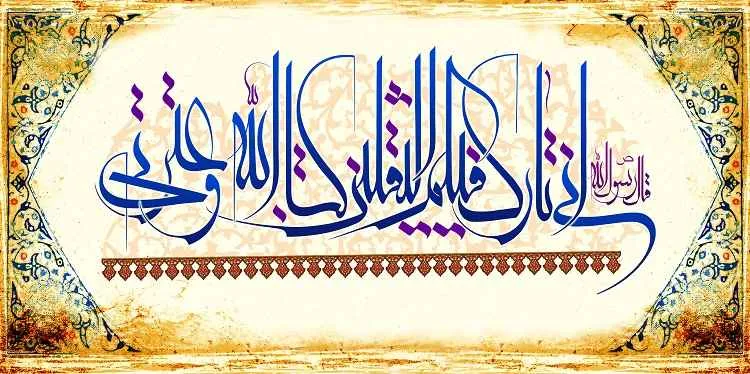 قال رسول الله ص
انی تارک فیکم الثقلین کتاب الله و عترتی